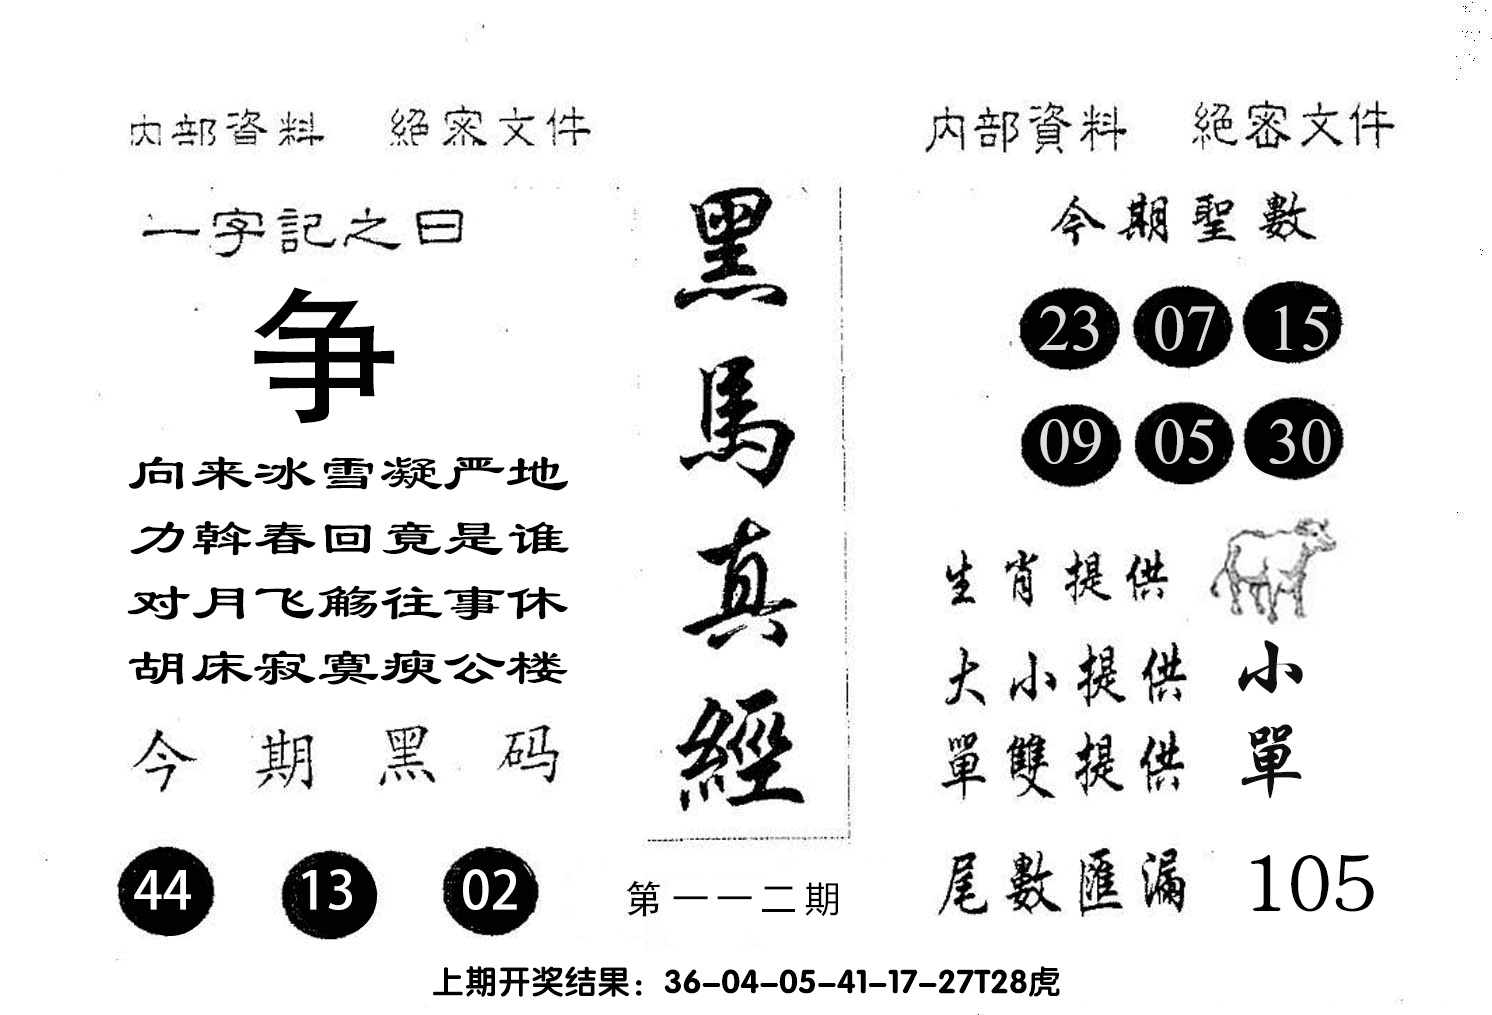 内部資料 絕密文件
一字記之曰
争
向来冰雪凝严地
力斡春回竟是谁
对月飞觞往事休
胡床寂寞瘐公楼
今期黑码
44 13 02
黑馬真經
第一一二期
内部資料 絕密文件
今期聖數
23 07 15
09 05 30
生肖提供
大小提供 小
單雙提供 單
尾數匯漏 105
上期开奖结果：36-04-05-41-17-27T28虎